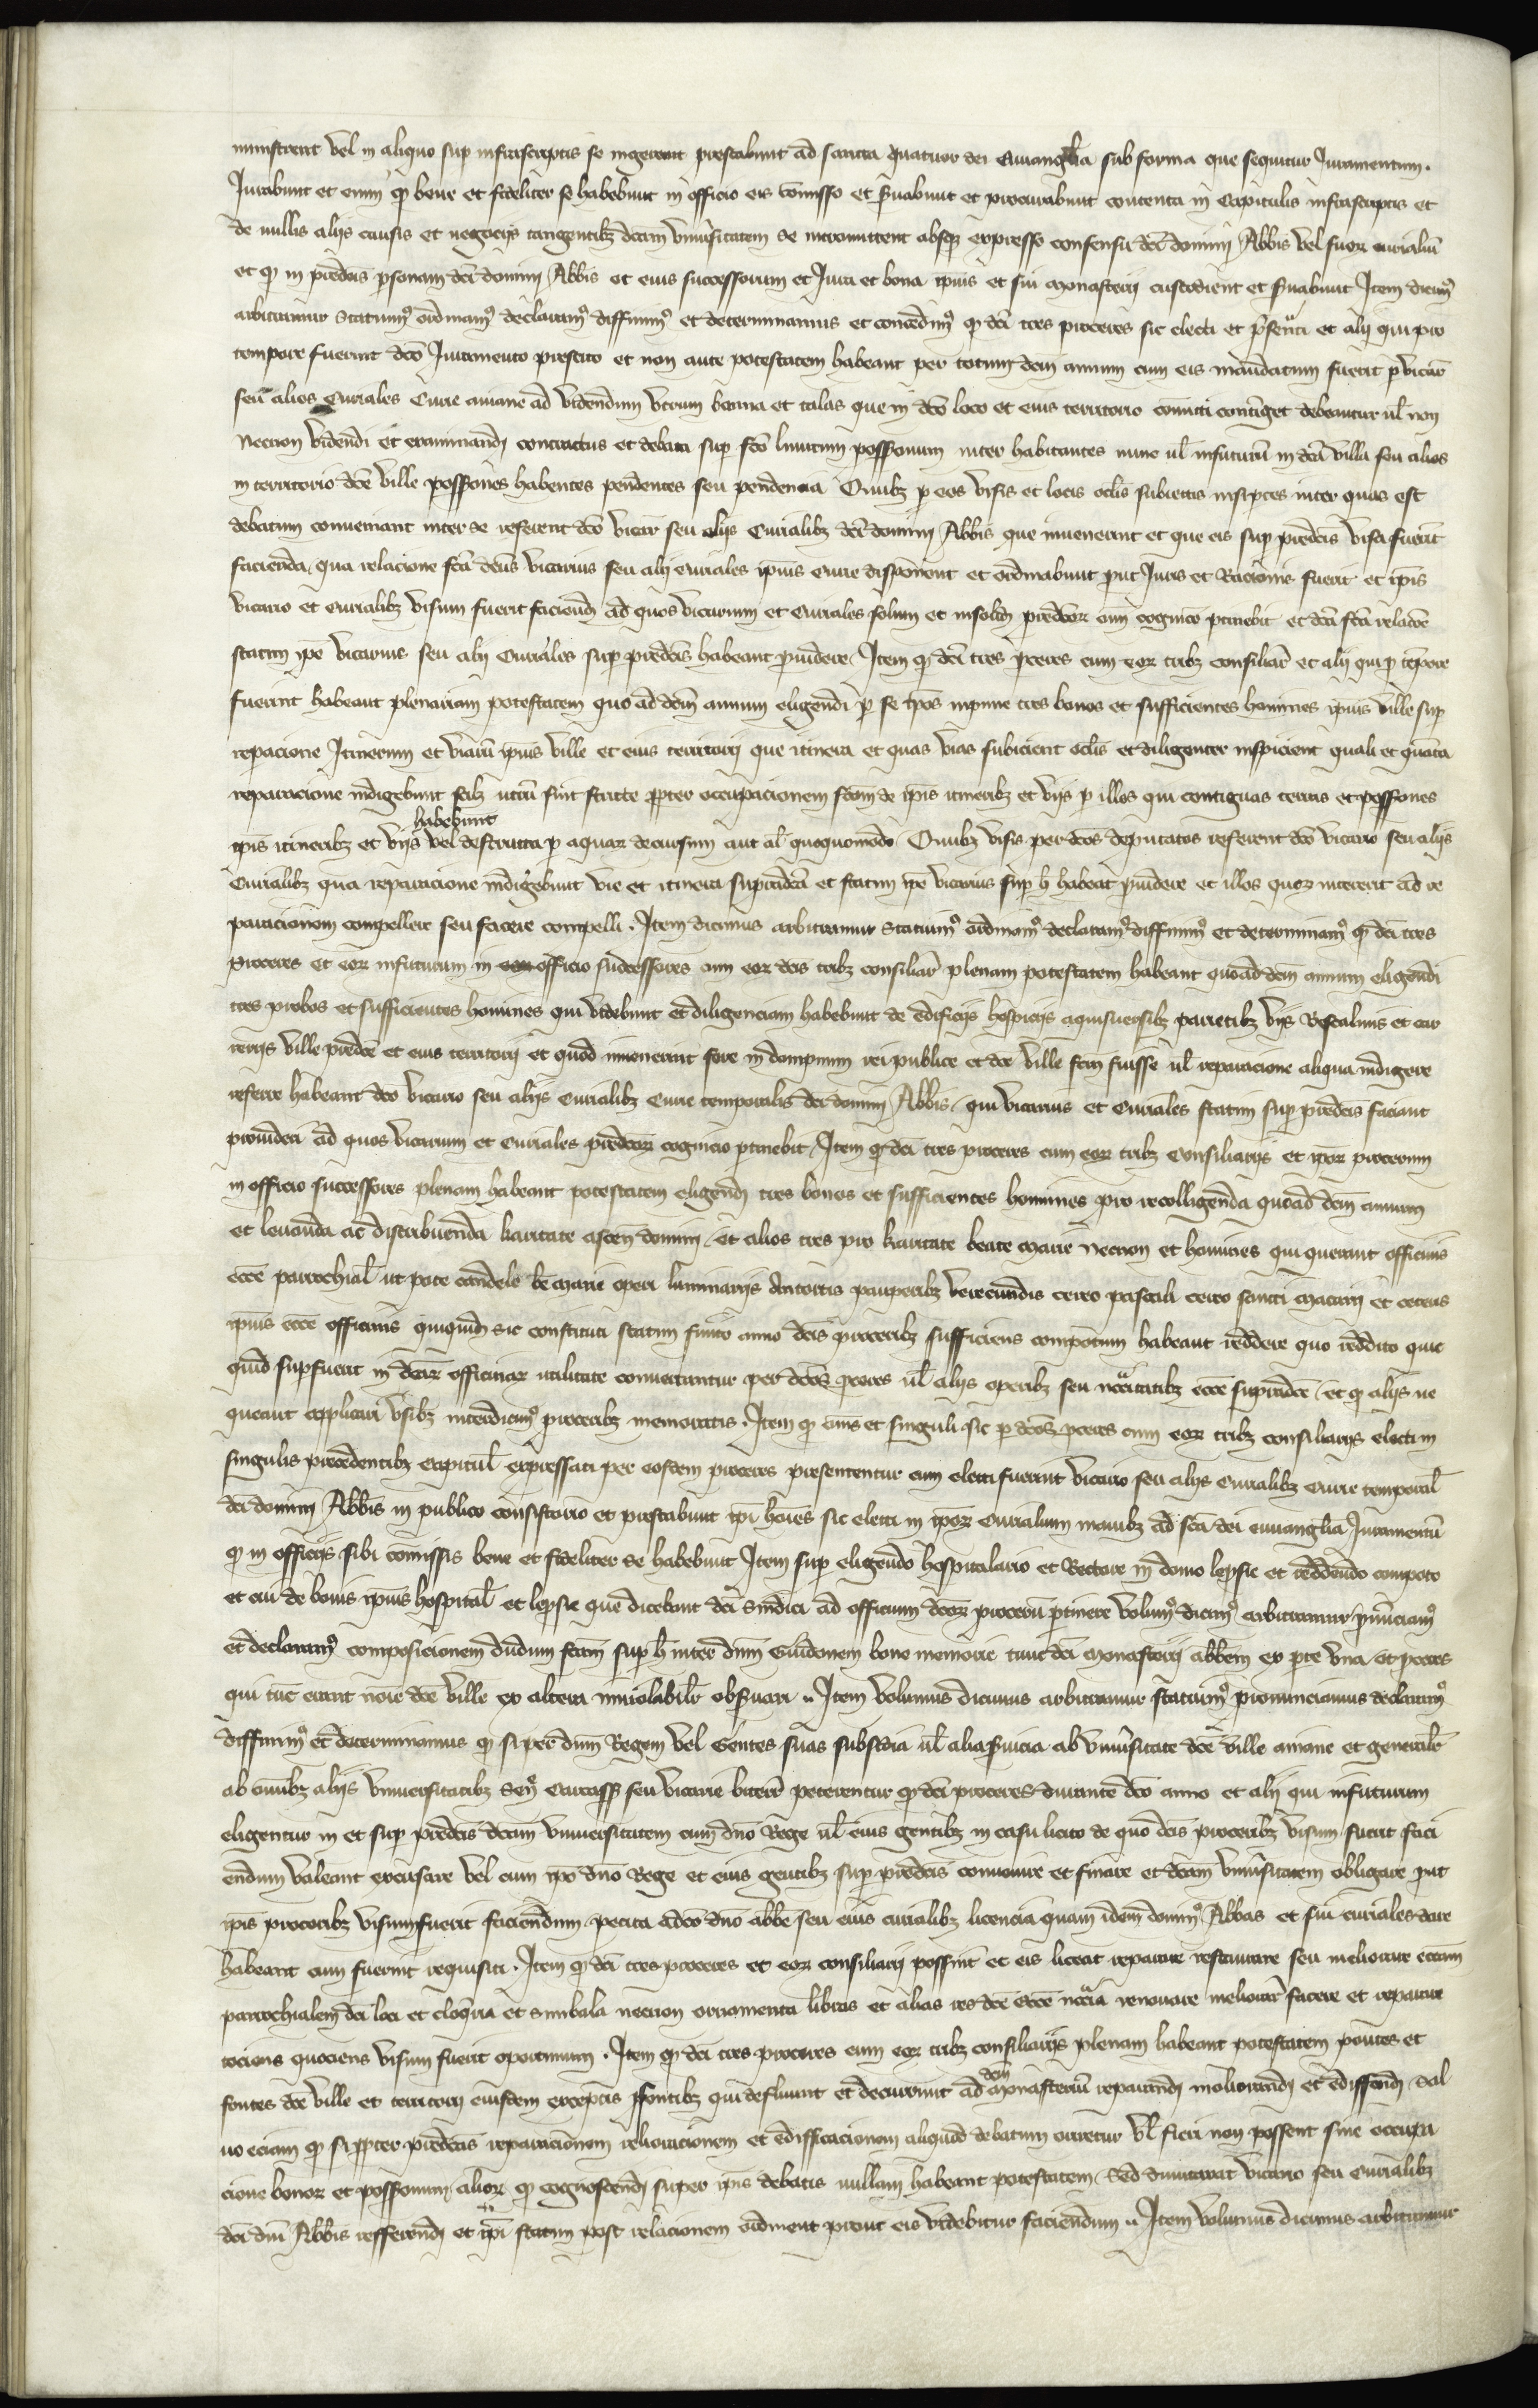 ministrent vel in aliquo sup infrascriptis se ingerent prestabunt ad sancta quatuor dei Euuangelia sub forma que sequitur Juramentum.
Jurabunt et enim qd bene et fideliter se habebunt in officio eis comisso et suabunt et procurabunt contenta in Capitulis infrascriptis et
de nullis alijs causis et negocijs tangentibz dcam vniusitatem se intromittent absqz expresso consensu dci domini Abbis vel suor curialiu
et qd in predcis psonam dci domini Abbis et eius successorum et Jura et bona ipius et sui monasterij custodient et suabunt Item dicim9
arbitramur statuim9 ordinam9 declaram9 diffinim9 et determinamus et concedim9 qd dci tres proceres sic electi et psentati et alij qui pro
tempore fuerint dco Juramento prestito et non ante potestatem habeant per totum dcm annum cum eis mandatum fuerit p vicar
seu alios Curiales Curie aniane ad videndum vtrum banna et talas que in dco loco et eius territorio comitti continget debeantur ul non
Necnon videndi et examinandj contractus et debata sup fco limitum possonum inter habitantes nunc ul infuturu in dca villa seu alios
in territorio dce ville possones habentes pendentes seu pendencia Omibz p eos visis et locis oclis subiectis insi ptes inter quas est
debatum conueniant inter se referent dco vicar seu alijs Curialibz dci domini Abbis que inuenerint et que eis sup predcis visa fuerit
facienda, qua relacione fca dcus vicarius seu alij curiales ipius curie disponent et ordinabunt put Juris et Racionis fuerit et ipis
vicario et curialibz visum fuerit faciendj ad quos vicarium et Curiales solum et insolidj predcor cum cognico ptinebit et dca fca relacoe
statim ipe vicarius seu alij Curiales sup predcis habeant puidere, Item qd dci tres pceres cum eor tribz consiliar et alij qui p tempore
fuerint habeant plenariam potestatem quo ad dcm annum eligendi p se ipos inpune tres bonos et sufficientes homines ipius ville sup
repacione Itinerum et viaru ipius ville et eius territorij que itinera et quas vias subicient oclis et diligenter inspicient quali et quanta
reparacione indigebunt scilz utru sint stricte ppter occupacionem fcam de ipis itineribz et vijs p illos qui contiguas terras et possones
habebunt
ipis itineribz et vijs vel destructa p aquar decursum aut al quoquomodo Omibz visis per dcos deputatos referent dco vicario seu alijs
Curialibz qua reparacione indigebunt vie et itinera supradca et statim ipe vicarius sup h habeat puidere et illos quor intererit ad re
paracionem compellere seu facere compelli. Item dicimus arbitramur statuim9 ordinam9 declaram9 diffinim9 et determinam9 qd dci tres
proceres et eor infuturum in officio successores cum eor dcis tribz consiliar plenam potestatem habeant quoad dcm annum eligendi
tres probos et sufficientes homines qui videbunt et diligenciam habebunt de edificijs hospicijs aquisuersibz parietibz vijs Rescalinis et car
rerijs ville predce et eius territorij et quod inuenerint fore in dompnum rei publice et dce ville fcm fuisse ul reparacione aliqua indigere
referre habeant dco vicario seu alijs curialibz Curie temporalis dci domini Abbis, qui vicarius et Curiales statim sup predcis faciant
prouideri ad quos vicarium et Curiales predcor cognicio ptinebit, Item qd dci tres proceres cum eor tribz Consiliarijs et ipor procerum
in officio successores plenam habeant potestatem eligendj tres bonos et sufficientes homines pro recolligenda quoad dcm annum
et leuanda ac distribuenda karitate ascen domini, et alios tres pro karitate beate marie Necnon et homines qui querant officinis
ecce parrochial ut pote candele be marie operi luminarijs Antortis pauperibz verecundis cereo pascali cereo sancti macarij et ceteris
ipius ecce officinis quiquidj sic constituti statim finito anno dcis proceribz sufficiens compotum habeant reddere quo reddito quic
quid supfuerit in dcar officinar utilitate conuertantur per dcos pceres ul alijs operibz seu necitatibz ecce supradce, et qd alijs ne
queant applicari vsibz interdicim9 proceribz memoratis. Item qd omes et singuli sic p dcos pceres cum eor tribz consiliarijs electi in
singulis precedentibz capitul expressati per eosdem proceres presententur cum electi fuerint vicario seu alijs curialibz curie temporal
dci domini Abbis in publico consistorio et prestabunt ipi hoies sic electi in ipor curialium manibz ad sca dei euuanglia Juramentu
qd in officijs sibi comissis bene et fideliter se habebunt Item sup eligendo hospitalario et Rectore in domo lepsie et reddendo compoto
et cui de bonis ipius hospital et lepsie que dicebant dci Sindici ad officium dcor proceru ptinere volum9 dicim9 arbitramur pnuciam9
et declaram9 composicionem dudum fcam sup h inter dnm Guidonem bone memorie tunc dci monasterij abbem ex pte vna et pceres
qui tuc erant noie dce ville ex altera inuiolabilr obsuari .. Item volumus dicimus arbitramur statuim9 pronunciamus declaram9
diffinim9 et determinamus qd si per dnm Regem vel Gentes suas subsidia ul alia suicia ab vniusitate dce ville aniane et generalr
ab omibz alijs vniuersitatibz Sen9 Carcass seu vicarie biterr peterentur qd dci proceres durante dco anno et alij qui infuturum
eligentur in et sup predcis dcam vniuersitatem cum dno Rege ul eius gentibz in casu licito de quo dcis proceribz visum fuerit faci
endum valeant excusare vel cum ipo dno Rege et eius gentibz sup predcis conuenire et finare et dcam vniusitatem obligare put
ipis proceribz visum fuerit faciendum, petita adeo dno abbe seu eius curialibz licencia quam idem domin9 Abbas et sui curiales dare
habeant cum fuerint requisiti. Item qd dci tres proceres et eor consiliarij possint et eis liceat reparare restaurare seu meliorare eccam
parrochialem dci loci et cloqria et simbala necnon ornamenta libros et alias res dce ecce necria renouare meliorar facere et reparare
tociens quociens visum fuerit oportunum. Item qd dci tres proceres cum eor tribz consiliarijs plenam habeant potestatem pontes et
dcm
fontes dce ville et territorij eiusdem exceptis fontibz qui defluunt et decurrunt ad monasteriu reparandj meliorandj et edifficandj sal
uo eciam qd si ppter predcas reparacionem melioracionem et edifficacionem aliquid debatum oriretur vl fieri non possent sine occupa
cione bonor et possonum alior qd cognoscendj super ipis debatis nullam habeant potestatem, Sed vicario seu Curialibz
dci dni Abbis refferendj et ipi statim post relacionem ordinent prout eis videbitur faciendum .. Item volumus dicimus arbitramur